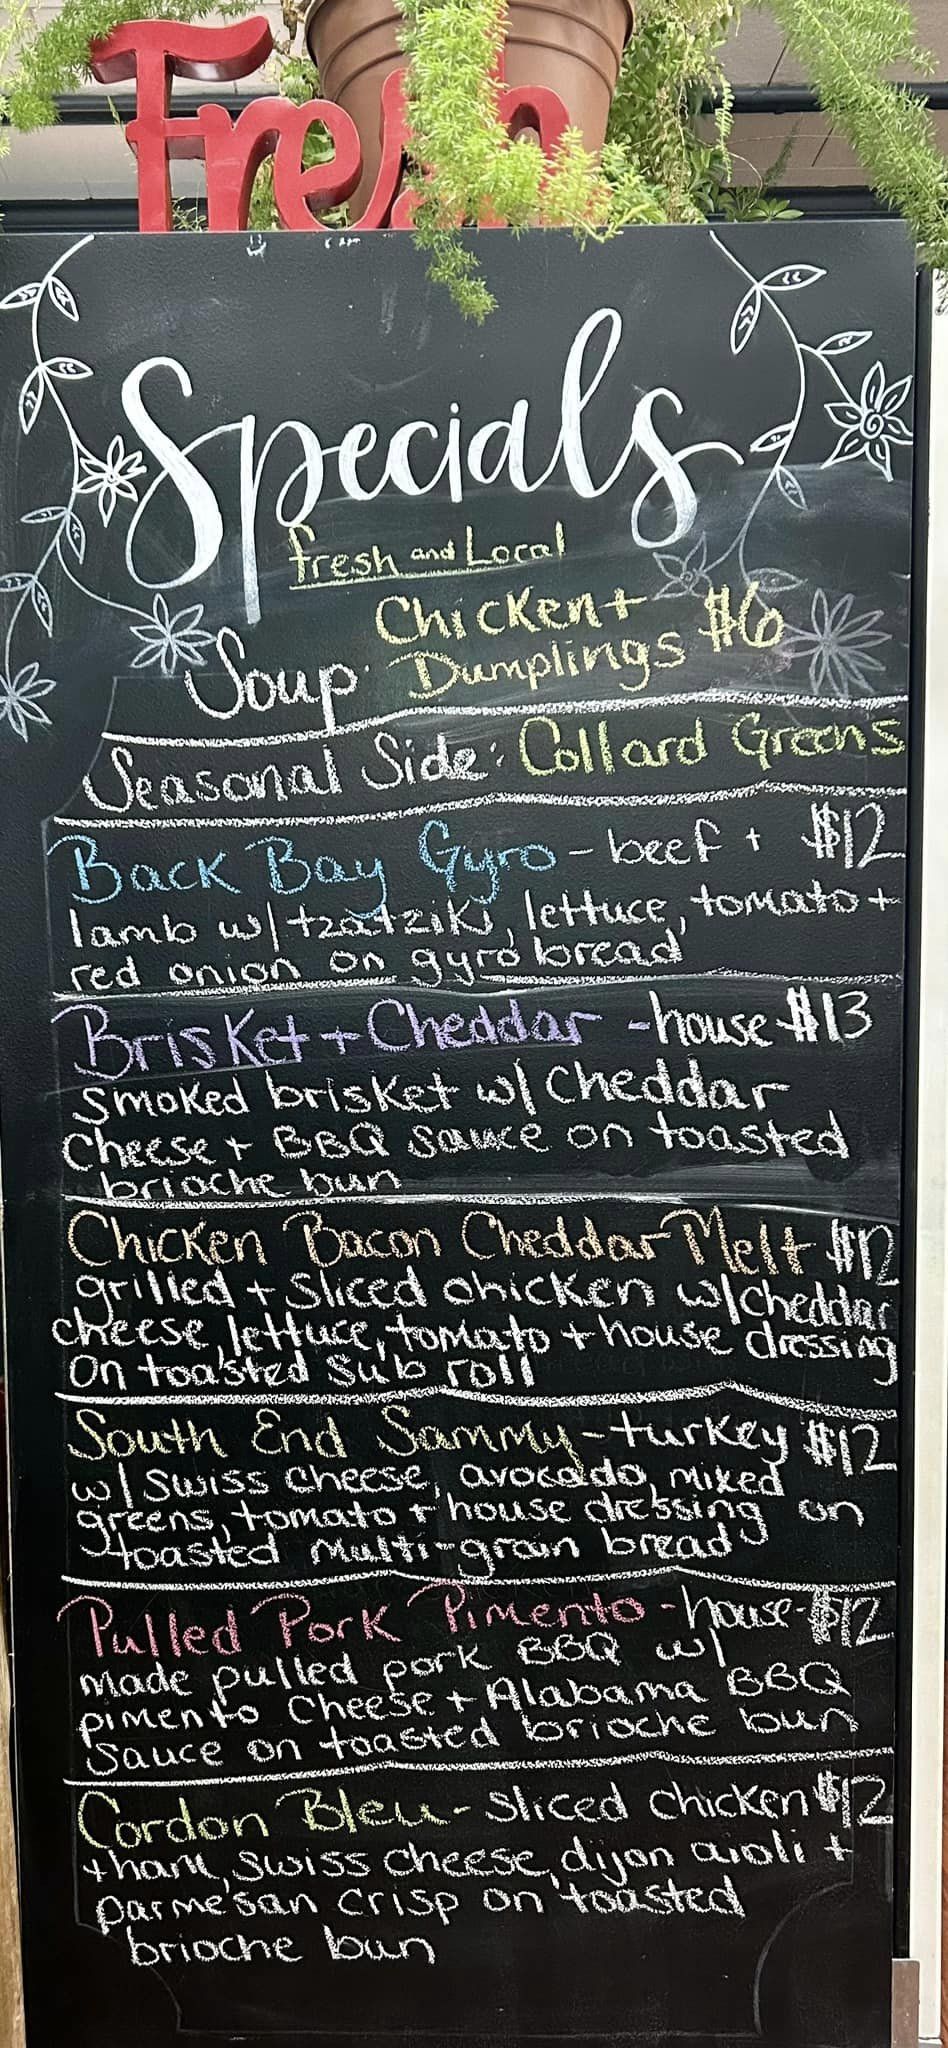 Fresh
Specials
fresh and Local
Chicken +
Soup: Dumplings $6
Seasonal Side: Collard Greens
Back Bay Gyro - beef + $12
lamb w/ tzatziki, lettuce, tomato +
red onion on gyro bread
Brisket + Cheddar - house $13
smoked brisket w/ cheddar
cheese + BBQ sauce on toasted
brioche bun
Chicken Bacon Cheddar Melt $12
grilled + sliced chicken w/ cheddar
cheese, lettuce, tomato + house dressing
on toasted sub roll
South End Sammy - turkey $12
w/ swiss cheese, avocado, mixed
greens, tomato + house dressing on
toasted multi-grain bread
Pulled Pork Pimento - house- $12
made pulled pork BBQ w/
pimento cheese + Alabama BBQ
sauce on toasted brioche bun
Cordon Bleu - sliced chicken $12
+ ham, swiss cheese, dijon aioli +
parmesan crisp on toasted
brioche bun